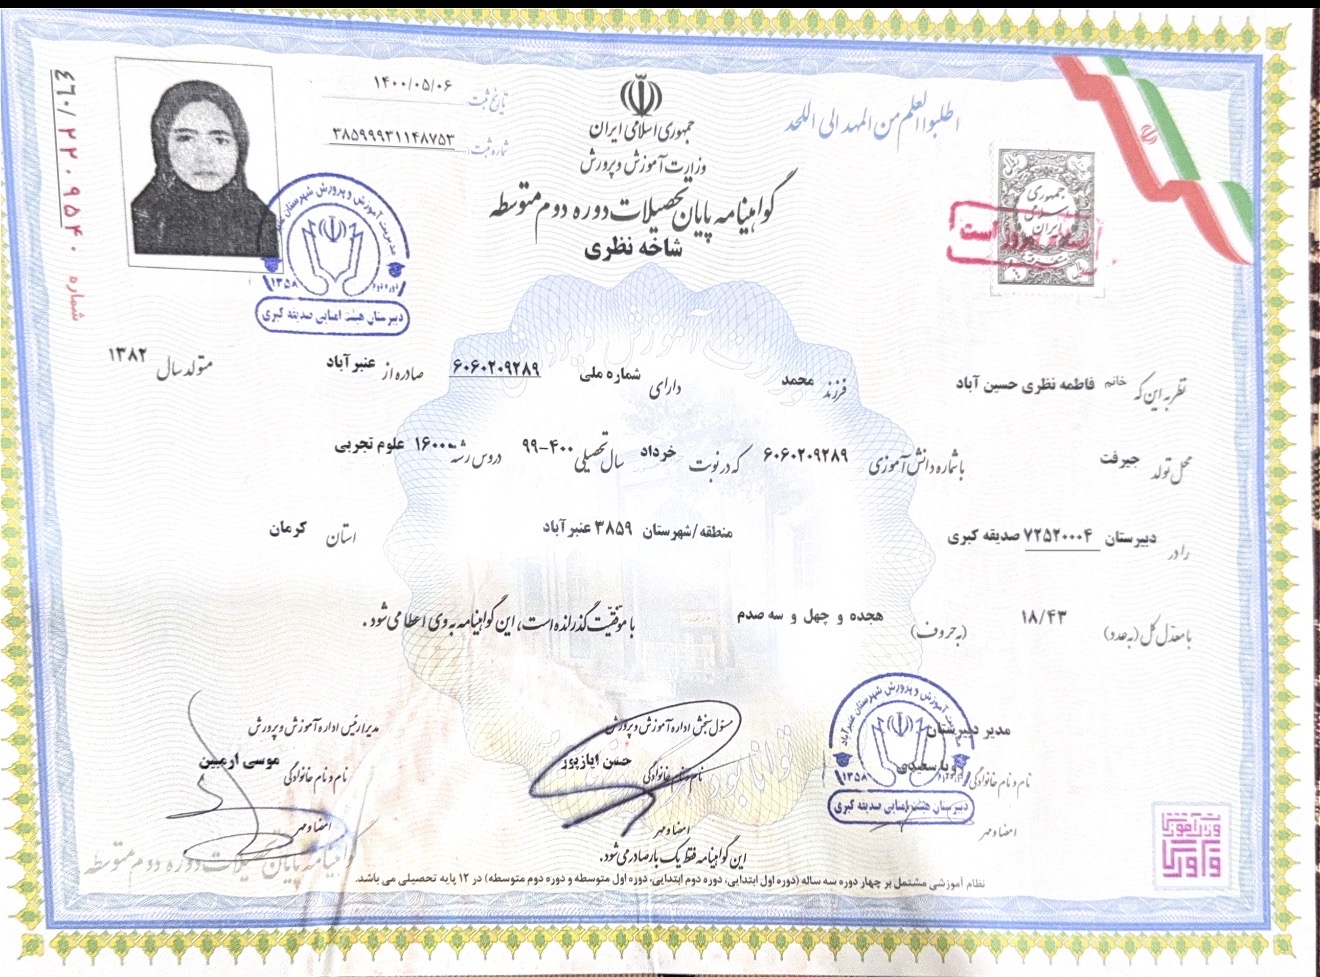 اطلبوا العلم من المهد الی اللحد
جمهوری اسلامی ایران
وزارت آموزش و پرورش
گواهینامه پایان تحصیلات دوره دوم متوسطه
شاخه نظری
تاریخ ثبت: ۱۴۰۰/۰۵/۰۶
شماره ثبت: ۳۸۵۹۹۹۳۱۱۴۸۷۵۳
شماره ۴۶۰/۲۲۰۹۵۴۰
جمهوری
اسلامی
ایران
مدیریت آموزش و پرورش شهرستان
۱۳۵۸
دبیرستان هیئت امنایی صدیقه کبری
نظر به این که خانم فاطمه نظری حسین آباد فرزند محمد دارای شماره ملی ۶۰۶۰۲۰۹۲۸۹ صادره از عنبرآباد متولد سال ۱۳۸۲
محل تولد جیرفت با شماره دانش آموزی ۶۰۶۰۲۰۹۲۸۹ که در نوبت خرداد سال تحصیلی ۴۰۰-۹۹ دروس رشته ۱۶۰۰۰ علوم تجربی
را در دبیرستان ۷۲۵۲۰۰۰۴ صدیقه کبری منطقه/شهرستان ۳۸۵۹ عنبرآباد استان کرمان
با معدل کل (به عدد) ۱۸/۴۳ (به حروف) هجده و چهل و سه صدم با موفقیت گذرانده است، این گواهینامه به وی اعطا می شود.
مدیر دبیرستان
نام و نام خانوادگی رویا سعیدی
امضا و مهر
مدیریت آموزش و پرورش شهرستان عنبرآباد
۱۳۵۸
دبیرستان هیئت امنایی صدیقه کبری
مسئول سنجش اداره آموزش و پرورش
نام و نام خانوادگی حسن ایازپور
امضا و مهر
مدیر/رئیس اداره آموزش و پرورش
نام و نام خانوادگی موسی ارمیین
امضا و مهر
این گواهینامه فقط یک بار صادر می شود.
گواهینامه پایان تحصیلات دوره دوم متوسطه
نظام آموزشی مشتمل بر چهار دوره سه ساله (دوره اول ابتدایی، دوره دوم ابتدایی، دوره اول متوسطه و دوره دوم متوسطه) در ۱۲ پایه تحصیلی می باشد.